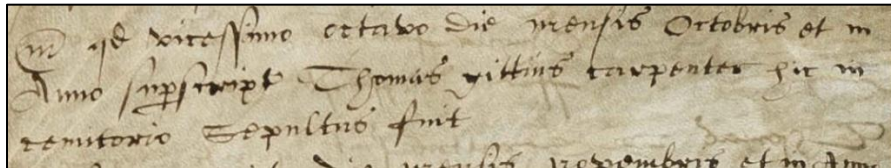 m̄ qd vicessimo octavo die mensis Octobris et in
Anno suprscript Thomas gittins carpenter hic in
cemitorio Sepultus fuit
die mensis novembris et in Anno